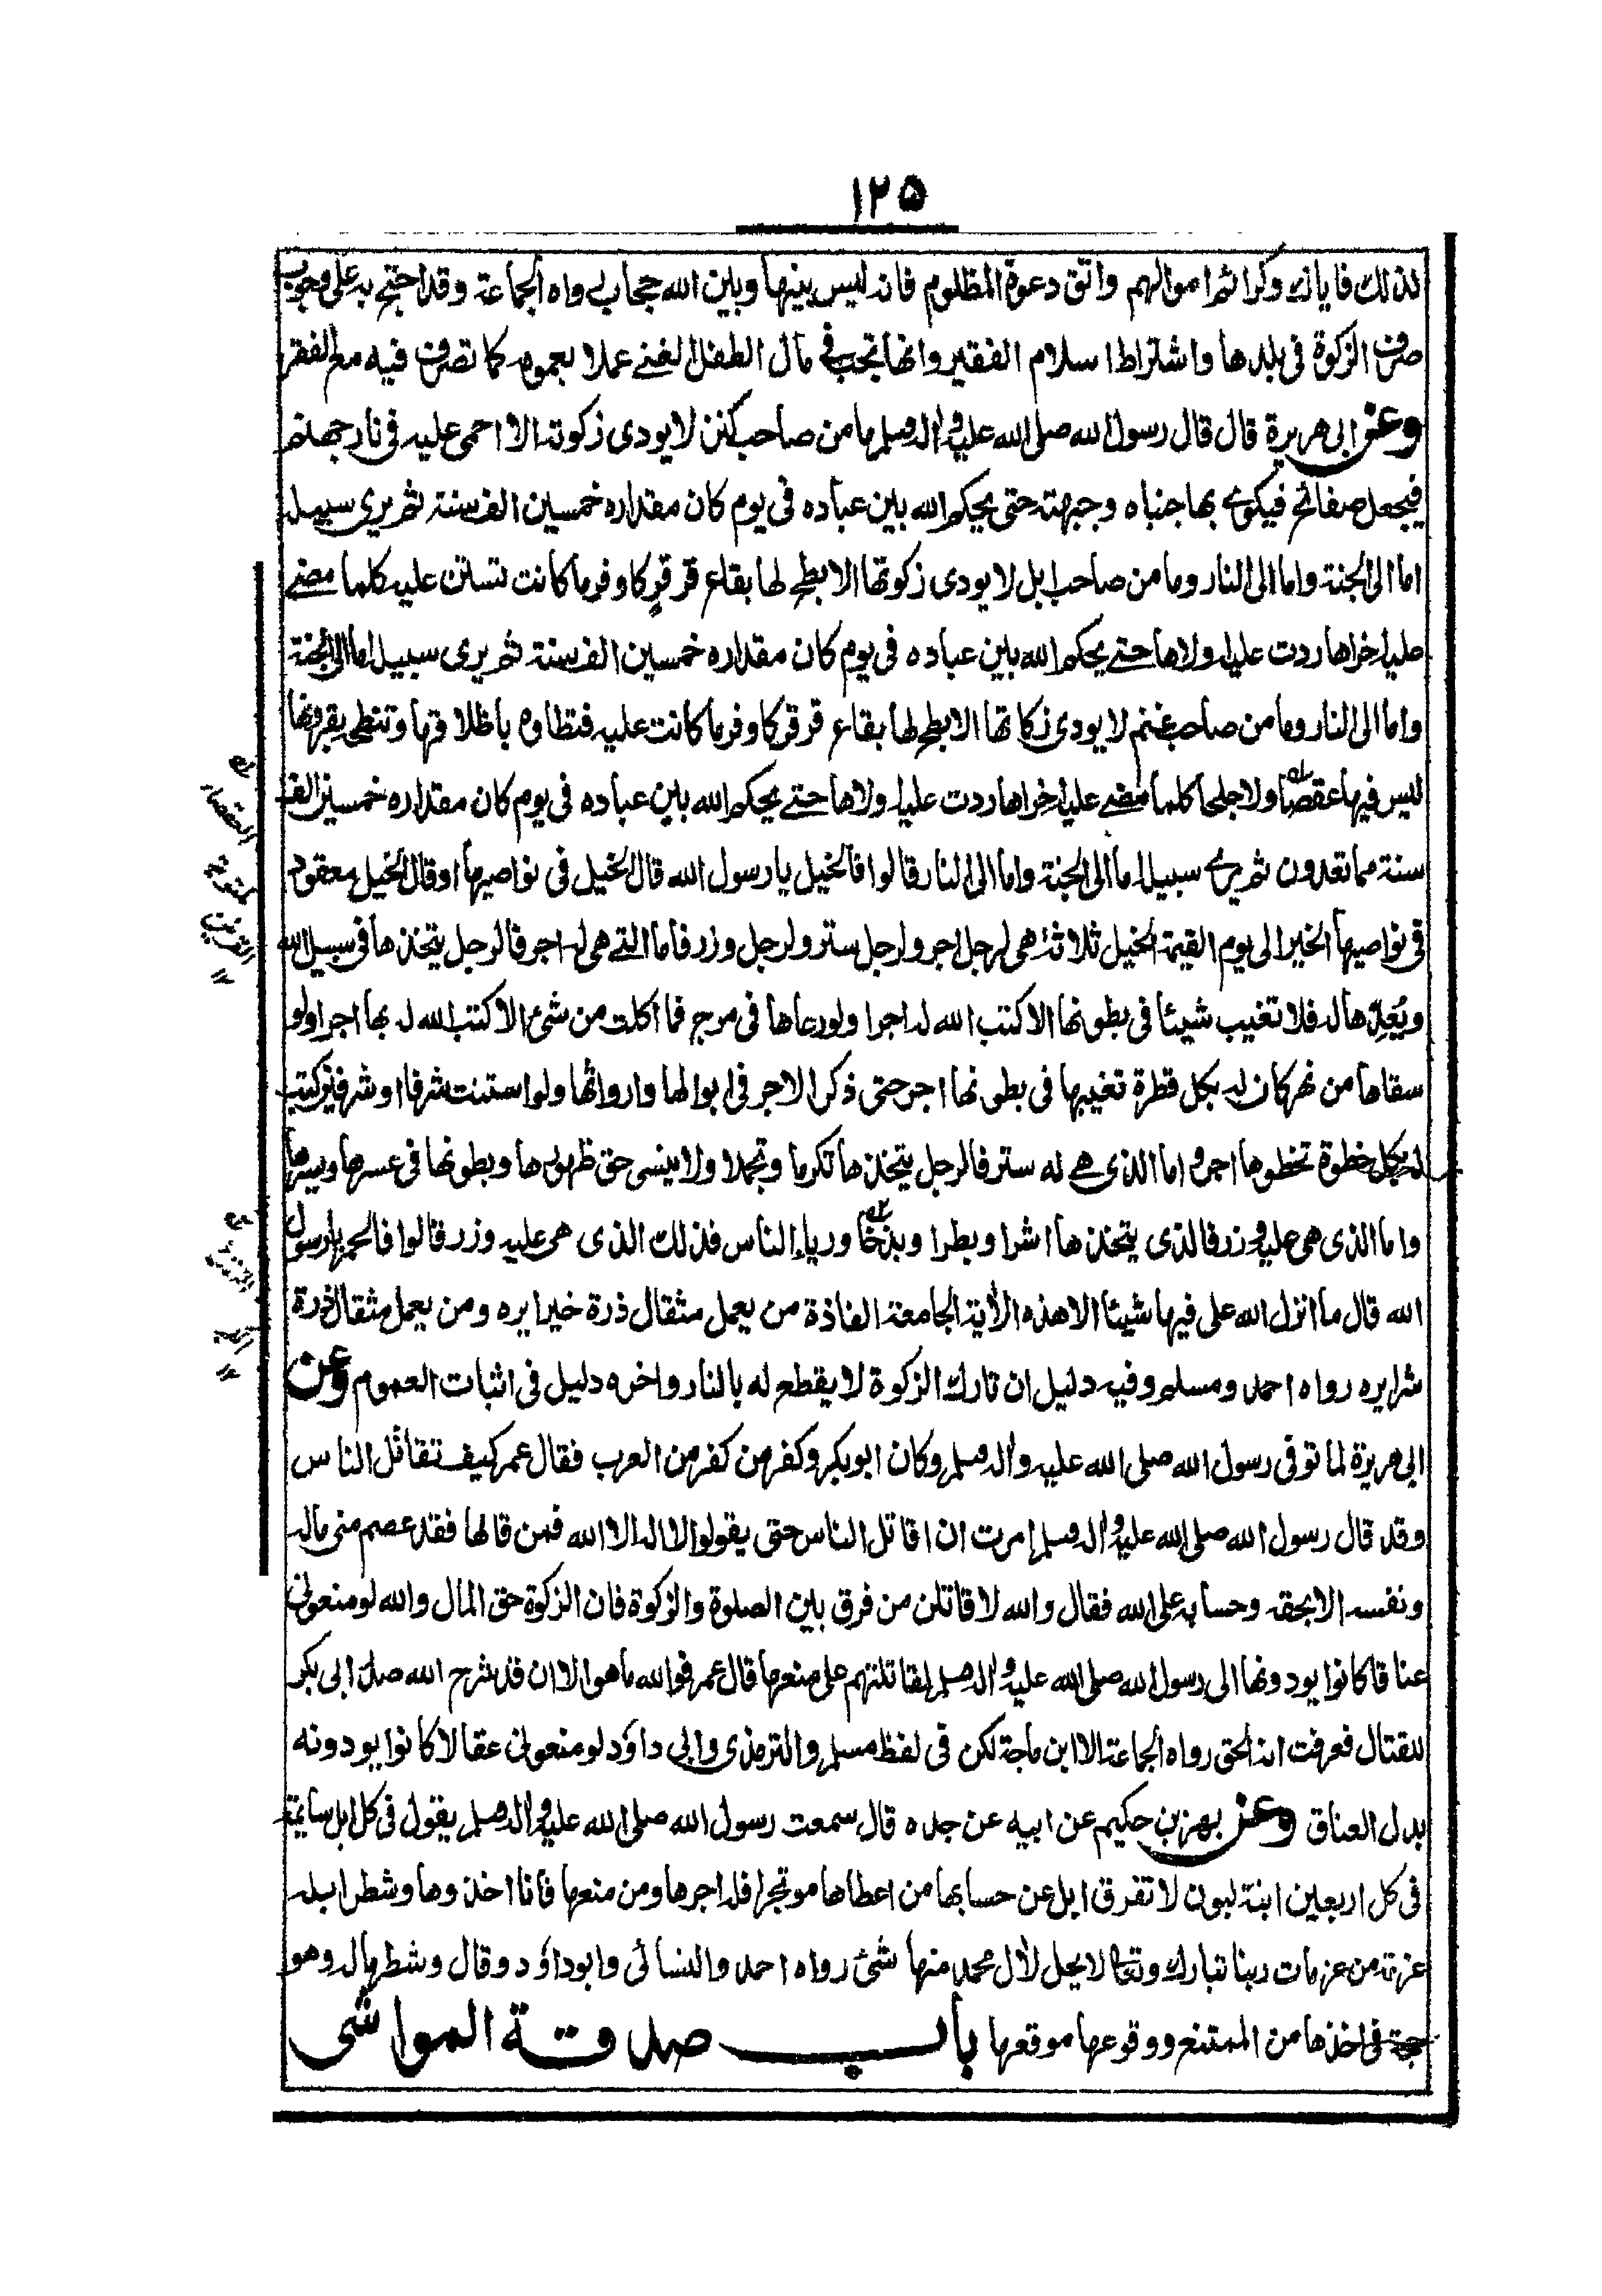 ١٢٥
لذلك فاياك وكرائم اموالهم واتق دعوة المظلوم فانه ليس بينها وبين الله حجاب رواه الجماعة وقد احتج به على وجوب
صرف الزكوة فى بلدها واشتراط اسلام الفقير وانها تجب فى مال الطفل الغنى عملا بعمومه كما تصرف فيه مع الفقر
وعن ابى هريرة قال قال رسول الله صلى الله عليه واله وسلم ما من صاحب كنز لا يودى زكوته الا احمى عليه فى نار جهنم
فيجعل صفائح فيكوى بها جنباه وجبهته حتى يحكم الله بين عباده فى يوم كان مقداره خمسين الف سنة ثم يرى سبيله
اما الى الجنة واما الى النار وما من صاحب ابل لا يودى زكوتها الا بطح لها بقاع قرقر كاوفر ما كانت تستن عليه كلما مضى
عليه اخراها ردت عليه اولاها حتى يحكم الله بين عباده فى يوم كان مقداره خمسين الف سنة ثم يرى سبيله اما الى الجنة
واما الى النار وما من صاحب غنم لا يودى زكاتها الا بطح لها بقاع قرقر كاوفر ما كانت عليه فتطاوه باظلافها وتنطحه بقرونها
ليس فيها عقصا ولا جلحا كلما مضى عليه اخراها ردت عليه اولاها حتى يحكم الله بين عباده فى يوم كان مقداره خمسين الف
سنة مما تعدون ثم يرى سبيله اما الى الجنة واما الى النار قالوا فالخيل يا رسول الله قال الخيل فى نواصيها او قال الخيل معقود
فى نواصيها الخير الى يوم القيمة الخيل ثلاثة هى لرجل اجر ولرجل ستر ولرجل وزر فاما التى هى له اجر فالرجل يتخذها فى سبيل الله
ويُعِدّها له فلا تغيب شيئا فى بطونها الا كتب الله له اجرا ولو رعاها فى مرج فما اكلت من شئ الا كتب الله له بها اجرا ولو
سقاها من نهر كان له بكل قطرة تغيبها فى بطونها اجر حتى ذكر الاجر فى ابوالها واروائها ولو استنت شرفا او شرفين كتب
له بكل خطوة تخطوها اجر واما الذى هى له ستر فالرجل يتخذها تكرما وتجملا ولا ينسى حق ظهورها وبطونها فى عسرها ويسرها
واما الذى هى عليه وزر فالذى يتخذها اشرا وبطرا وبذخا ورياء الناس فذلك الذى هى عليه وزر قالوا فالحمر يا رسول
الله قال ما انزل الله على فيها شيئا الا هذه الأية الجامعة الفاذة من يعمل مثقال ذرة خيرا يره ومن يعمل مثقال ذرة
شرا يره رواه احمد ومسلم وفيه دليل ان تارك الزكوة لا يقطع له بالنار واخره دليل فى اثبات العموم وعن
ابى هريرة لما توفى رسول الله صلى الله عليه واله وسلم وكان ابو بكر وكفر من كفر من العرب فقال عمر كيف تقاتل الناس
وقد قال رسول الله صلى الله عليه واله وسلم امرت ان اقاتل الناس حتى يقولوا لا اله الا الله فمن قالها فقد عصم منى ماله
ونفسه الا بحقه وحسابه على الله فقال والله لاقاتلن من فرق بين الصلوة والزكوة فان الزكوة حق المال والله لو منعونى
عناقا كانوا يودونها الى رسول الله صلى الله عليه واله وسلم لقاتلتهم على منعها قال عمر فوالله ما هو الا ان قد شرح الله صدر ابى بكر
للقتال فعرفت انه الحق رواه الجماعة الا ابن ماجة لكن فى لفظ مسلم والترمذى وابى داؤد لو منعونى عقالا كانوا يودونه
بدل العناق وعن بهز بن حكيم عن ابيه عن جده قال سمعت رسول الله صلى الله عليه واله وسلم يقول فى كل ابل سايمة
فى كل اربعين ابنة لبون لا تفرق ابل عن حسابها من اعطاها موتجرا فله اجرها ومن منعها فانا اخذوها وشطر ابله
عزمة من عزمات ربنا تبارك وتعا لا يحل لأل محمد منها شئ رواه احمد والنسائى وابو داؤد وقال وشطر ماله وهو
حجة فى اخذها من الممتنع ووقوعها موقعها باب صدقة المواشى
العقصاء
ملتوية
القرنين
١٢